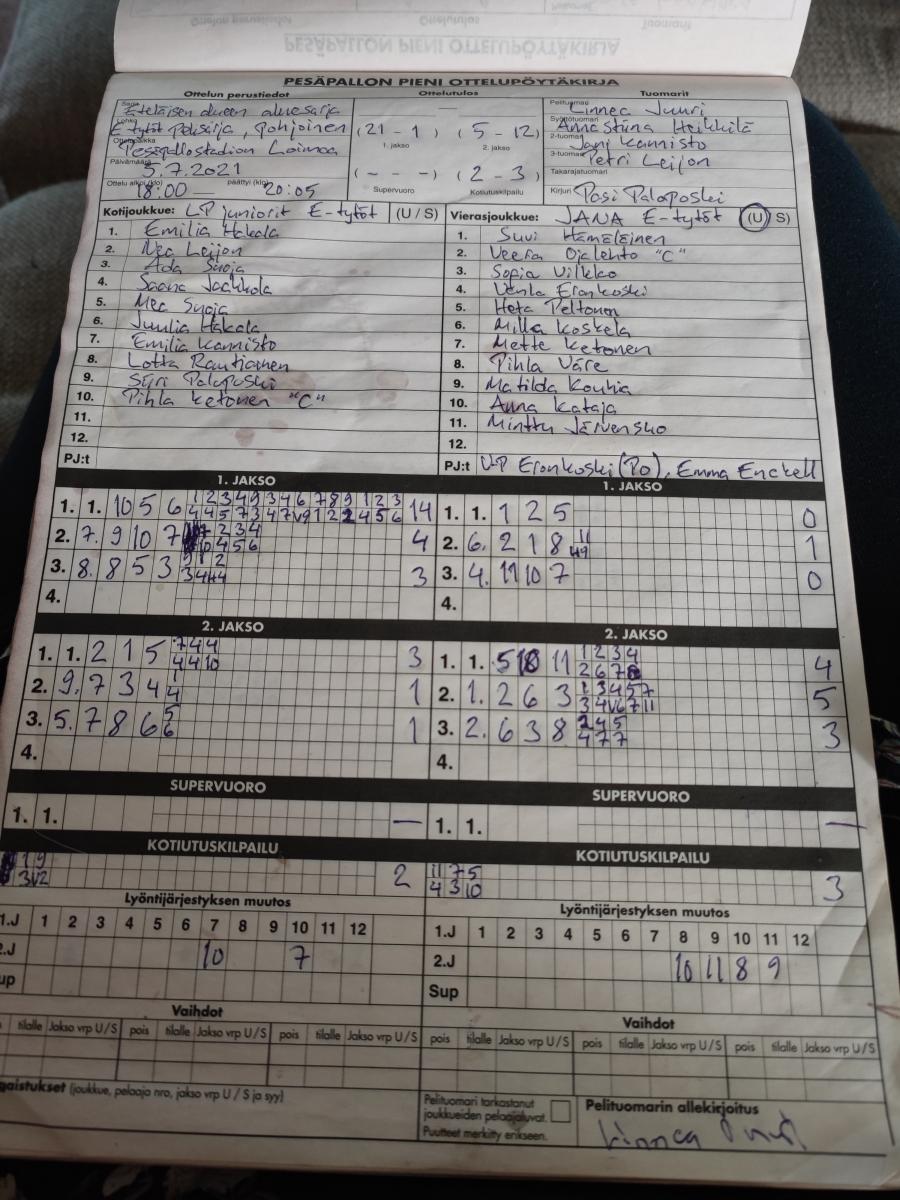 PESÄPALLON PIENI OTTELUPÖYTÄKIRJA
Ottelun perustiedot
Ottelutulos
Tuomarit
Sarja Eteläisen alueen aluesarja
Lohko E tytöt Poksarja, Pohjoinen
Ottelupaikka Pesäpallostadion Loimaa
Päivämäärä 5.7.2021
Ottelu alkoi (klo) 18:00 päättyi (klo) 20:05
(21 - 1) (5 - 12)
1. jakso 2. jakso
(- - -) (2 - 3)
Supervuoro Kotiutuskilpailu
Pelituomari Linnea Juuri
Syöttötuomari Anna Stiina Heikkilä
2-tuomari Jani Kannisto
3-tuomari Petri Leijon
Takarajatuomari
Kirjuri Pasi Paloposki
Kotijoukkue: LP juniorit E-tytöt (U / S)
1. Emilia Hakala
2. Nea Leijon
3. Ada Suoja
4. Saana Jaakkola
5. Mea Suoja
6. Juulia Hakala
7. Emilia Kannisto
8. Lotta Rautiainen
9. Siiri Paloposki
10. Pihla Ketonen "C"
11.
12.
PJ:t
Vierasjoukkue: JANA E-tytöt (U / S)
1. Suvi Hämäläinen
2. Veera Ojalehto "C"
3. Sofia Vilkko
4. Venla Eronkoski
5. Heta Peltonen
6. Milla Koskela
7. Mette Ketonen
8. Pihla Väre
9. Matilda Kouhia
10. Anna Kataja
11. Minttu Järvensko
12.
PJ:t V-P Eronkoski (Po), Emma Enckell
1. JAKSO
1. 1. 10 5 6 1 2 3 4 9 3 4 6 7 8 9 1 2 3 14
4 4 5 7 3 4 7 V9 1 2 2 4 5 6
2. 7. 9 10 7 7 2 3 4 4
10 4 5 6
3. 8. 8 5 3 9 1 2 3
3 4 4 4
4.
1. JAKSO
1. 1. 1 2 5 0
2. 6. 2 1 8 11 1
49
3. 4. 11 10 7 0
4.
2. JAKSO
1. 1. 2 1 5 7 4 4 3
4 4 10
2. 9. 7 3 4 1 1
4
3. 5. 7 8 6 5 1
6
4.
2. JAKSO
1. 1. 5 10 11 1 2 3 4 4
2 6 7 8
2. 1. 2 6 3 1 3 4 5 7 5
3 4 V6 7 11
3. 2. 6 3 8 2 4 5 3
4 7 7
4.
SUPERVUORO
1. 1. —
SUPERVUORO
1. 1. —
KOTIUTUSKILPAILU
1 9 2
3 V2
KOTIUTUSKILPAILU
11 7 5 3
4 3 10
Lyöntijärjestyksen muutos
1.J 1 2 3 4 5 6 7 8 9 10 11 12
2.J 10 7
up
Lyöntijärjestyksen muutos
1.J 1 2 3 4 5 6 7 8 9 10 11 12
2.J 10 11 8 9
Sup
Vaihdot
tilalle Jakso vrp U/S pois tilalle Jakso vrp U/S pois tilalle Jakso vrp U/S
Vaihdot
pois tilalle Jakso vrp U/S pois tilalle Jakso vrp U/S pois tilalle Jakso vrp U/S
gaistukset (joukkue, pelaaja nro, jakso vrp U / S ja syy)
Pelituomari tarkastanut
joukkueiden pelaajaluvat.
Puutteet merkitty erikseen.
Pelituomarin allekirjoitus
Linnea Juuri